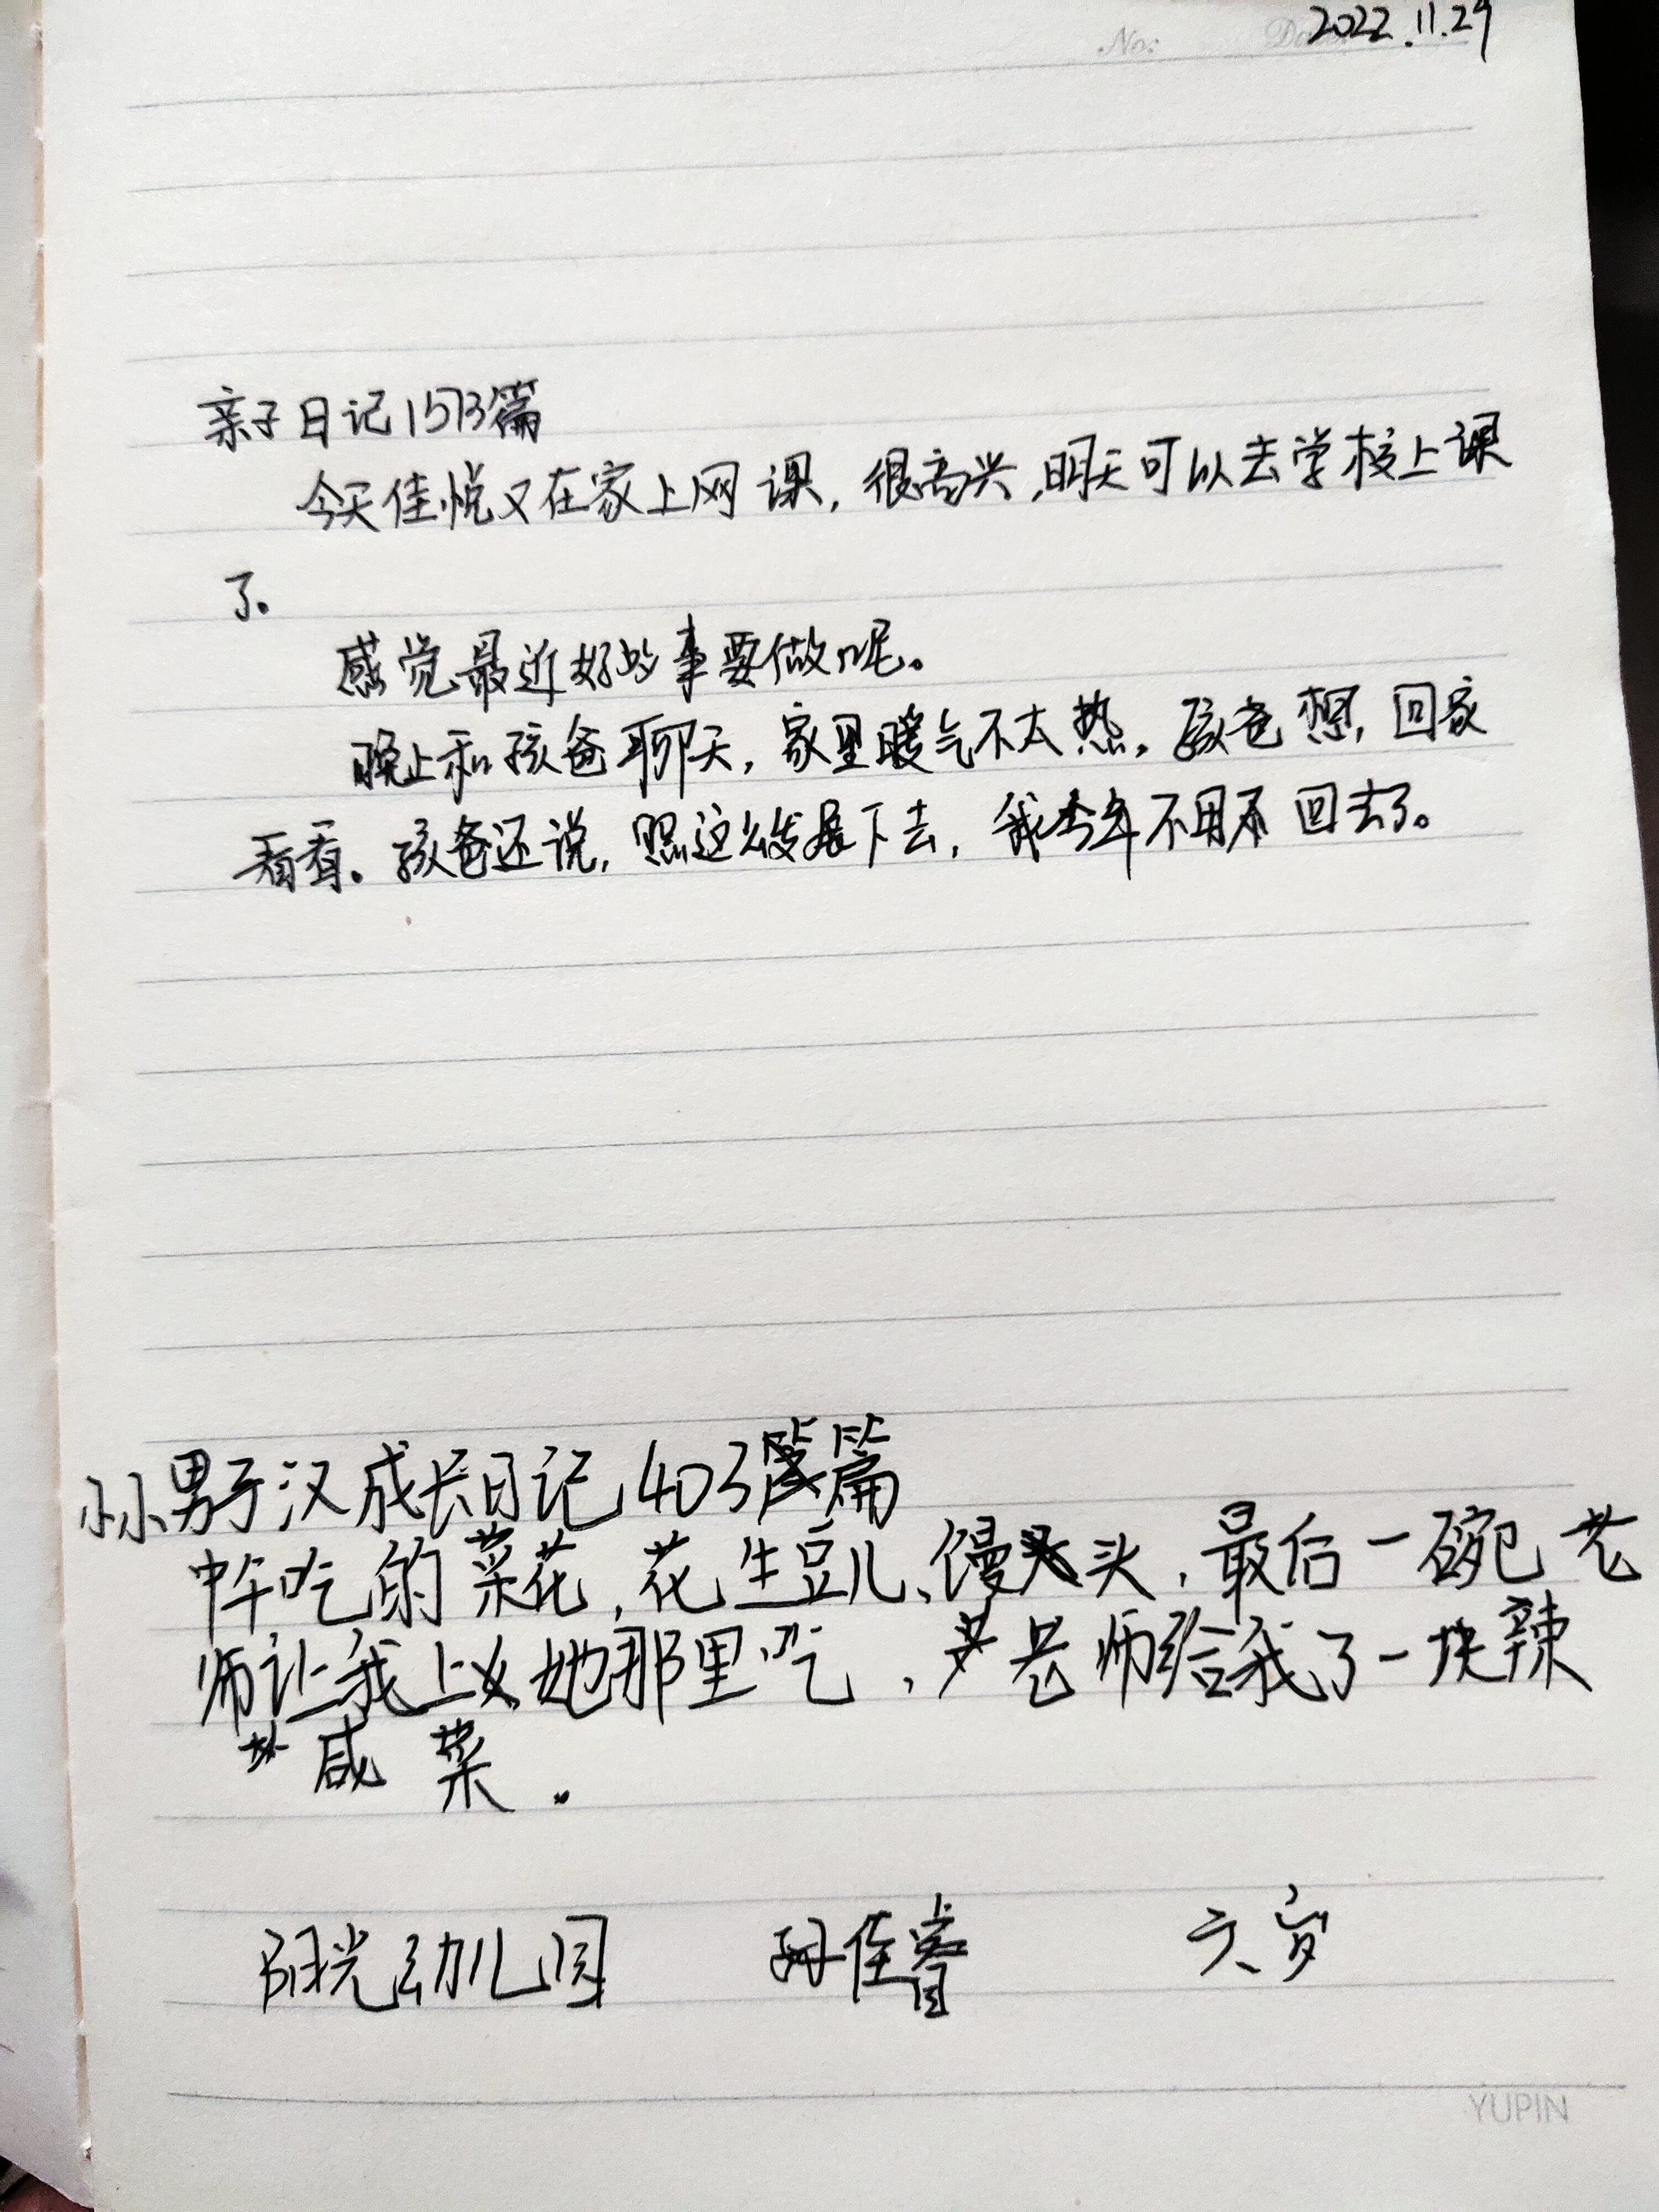 No: 2022.11.29
亲子日记1573篇
今天佳悦又在家上网课，很高兴，明天可以去学校上课
了。
感觉最近好多事要做呢。
晚上和孩爸聊天，家里暖气不太热。孩爸想，回家
看看。孩爸还说，照这么发展下去，我今年不用回去了。
小小男子汉成长日记403篇
中午吃的菜花，花生豆儿、馒头，最后一碗老
师让我上她那里吃，老师给我了一块辣
咸菜.
阳光幼儿园 孙佳睿 六岁
YUPIN